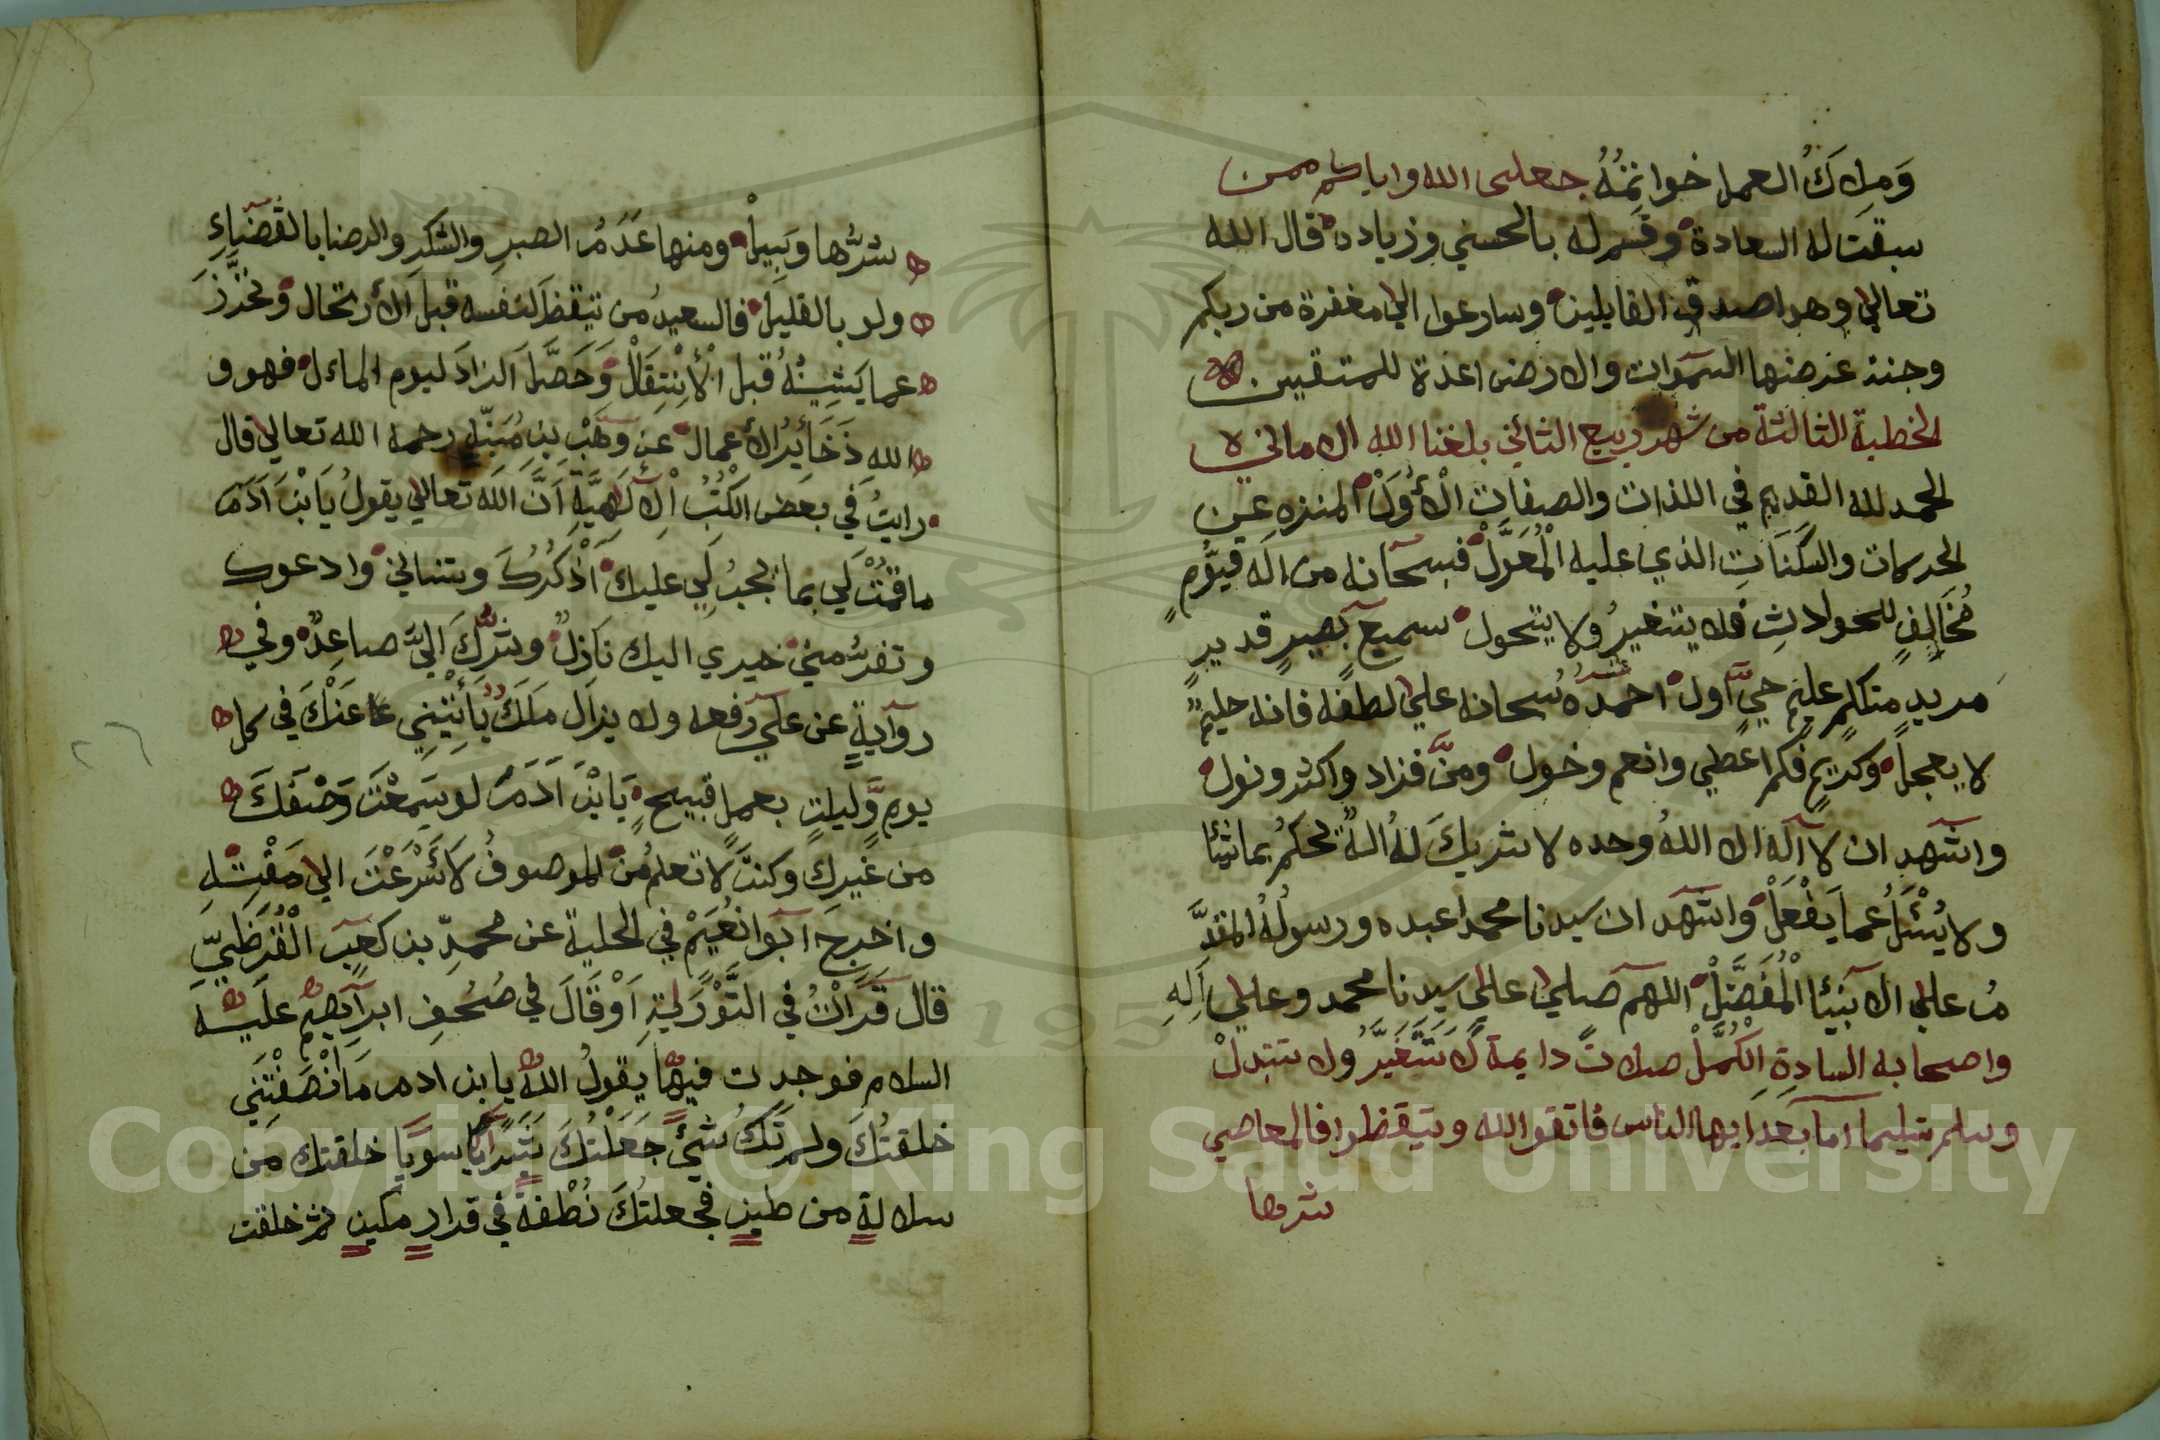 وَمِلاَكُ العمل خواتِمُهُ جعلنى الله واياكم ممن
سبقت له السعادة وقسم له بالحسني وزياده قال الله
تعالي وهو اصدق القايلين وسارعوا الي مغفرة من ربكم
وجنة عرضها السموات والارض اعدة للمتقين
الخطبة الثالثة من شهر ربيع الثاني بلغنا الله الاماني
الحمد لله القديم في الذات والصفات الْأُوَلْ المنزه عن
الحركات والسكنات الذي عليه الْمُعَوَّلْ فسبحانه من اله قيُّومٍ
مُخَالِفٍ للحوادثِ فلا يتغيرُ ولا يتحول سميع بصيرٍ قديرٍ
مريدٍ متكلمٍ عليمٍ حيٍّ اول احمدُهُ سُبحانه علي لطفه فانه حليمٌ
لا يعجل وكريمٍ فكم اعطي وانعم وخول ومنَّ فزاد واكثر ونول
واشهد ان لا اله الا اللهُ وحده لا شريكَ لهُ الهٌ يحكمُ بما يشا
ولا يُسْئَلُ عما يَفْعَلْ واشهد ان سيدنا محمدا عبده ورسولُهُ المقدَّ
مُ علي الانبيا الْمُفَضَّلْ اللهم صلي علي سيدنا محمد وعلي اَلِهِ
واصحابه السادةِ الْكُمَّلْ صلاتً دايمة لا تتغيَّرُ ولا تتبدلْ
وسلم تسليما اما بعد ايها الناس فاتقوا الله وتيقظوا فالمعاصي
شرها
شرُّها وَبِيلْ ومنها عَدَمُ الصبرِ والشكرِ والرضا بالقضاءِ
ولو بالقليل فالسعيدُ من تيقظَ لنفسه قبل الارتحال وتحرَّزَ
عما يَشِيْنُهُ قبل الْأِنْتِقَالْ وَحَصَّلَ الزادَ ليوم الماءل فهو و
الله ذَخَأيرُ الأعمال عن وَهْبِ بنِ مُنَبِّهٍ رحمه الله تعالي قال
رايتُ في بعض الكُتُبِ الإلَهِيَّةِ اَنَّ اللهَ تعالي يقولُ يَا بْنَ اَدَمَ
ما قمْتْ لِي بما يجبُ لِي عليكَ اَذْكُرُكَ وتنساني وادعوك
وتفرُّ مني خيري اليك نَازِلٌ وشرُّكَ اليَّ صاعِدٌ وفي
روايةٍ عن علي رفعه ولا يزال مَلَكٌ يَأْتِيْنِي عَنْكَ في كل
يومٍ وَّليلةٍ بعملٍ قبيحٍ يَا بْنَ اَدَمَ لو سَمِعْتَ وَصْفَكَ
من غيرِكَ وكنتَ لا تعلمُ منْ الموصوفُ لَأَسْرَعْتَ الي مَقْتِهِ
واخرجَ ابوا نُعَيْمْ في الحلية عن محمدِ بن كعب الْقُرَظيِّ
قال قَرَأْتُ في التَّوْرَيةِ اَوْ قَالَ في صُحُفِ ابراَهِيْمَ عَلَيْهِ
السلام فوجدت فيها يقولُ اللهُ يا بن ادم مَا اَنْصَفْتَنِي
خلقتُكَ ولم تَكُ شيْئً جَعَلْتُكَ بَشَراً سويًا خلقتك مَن
سلالةٍ من طينٍ فجعلتُكَ نُطْفَةً في قرارٍ مكينٍ ثم خلقت